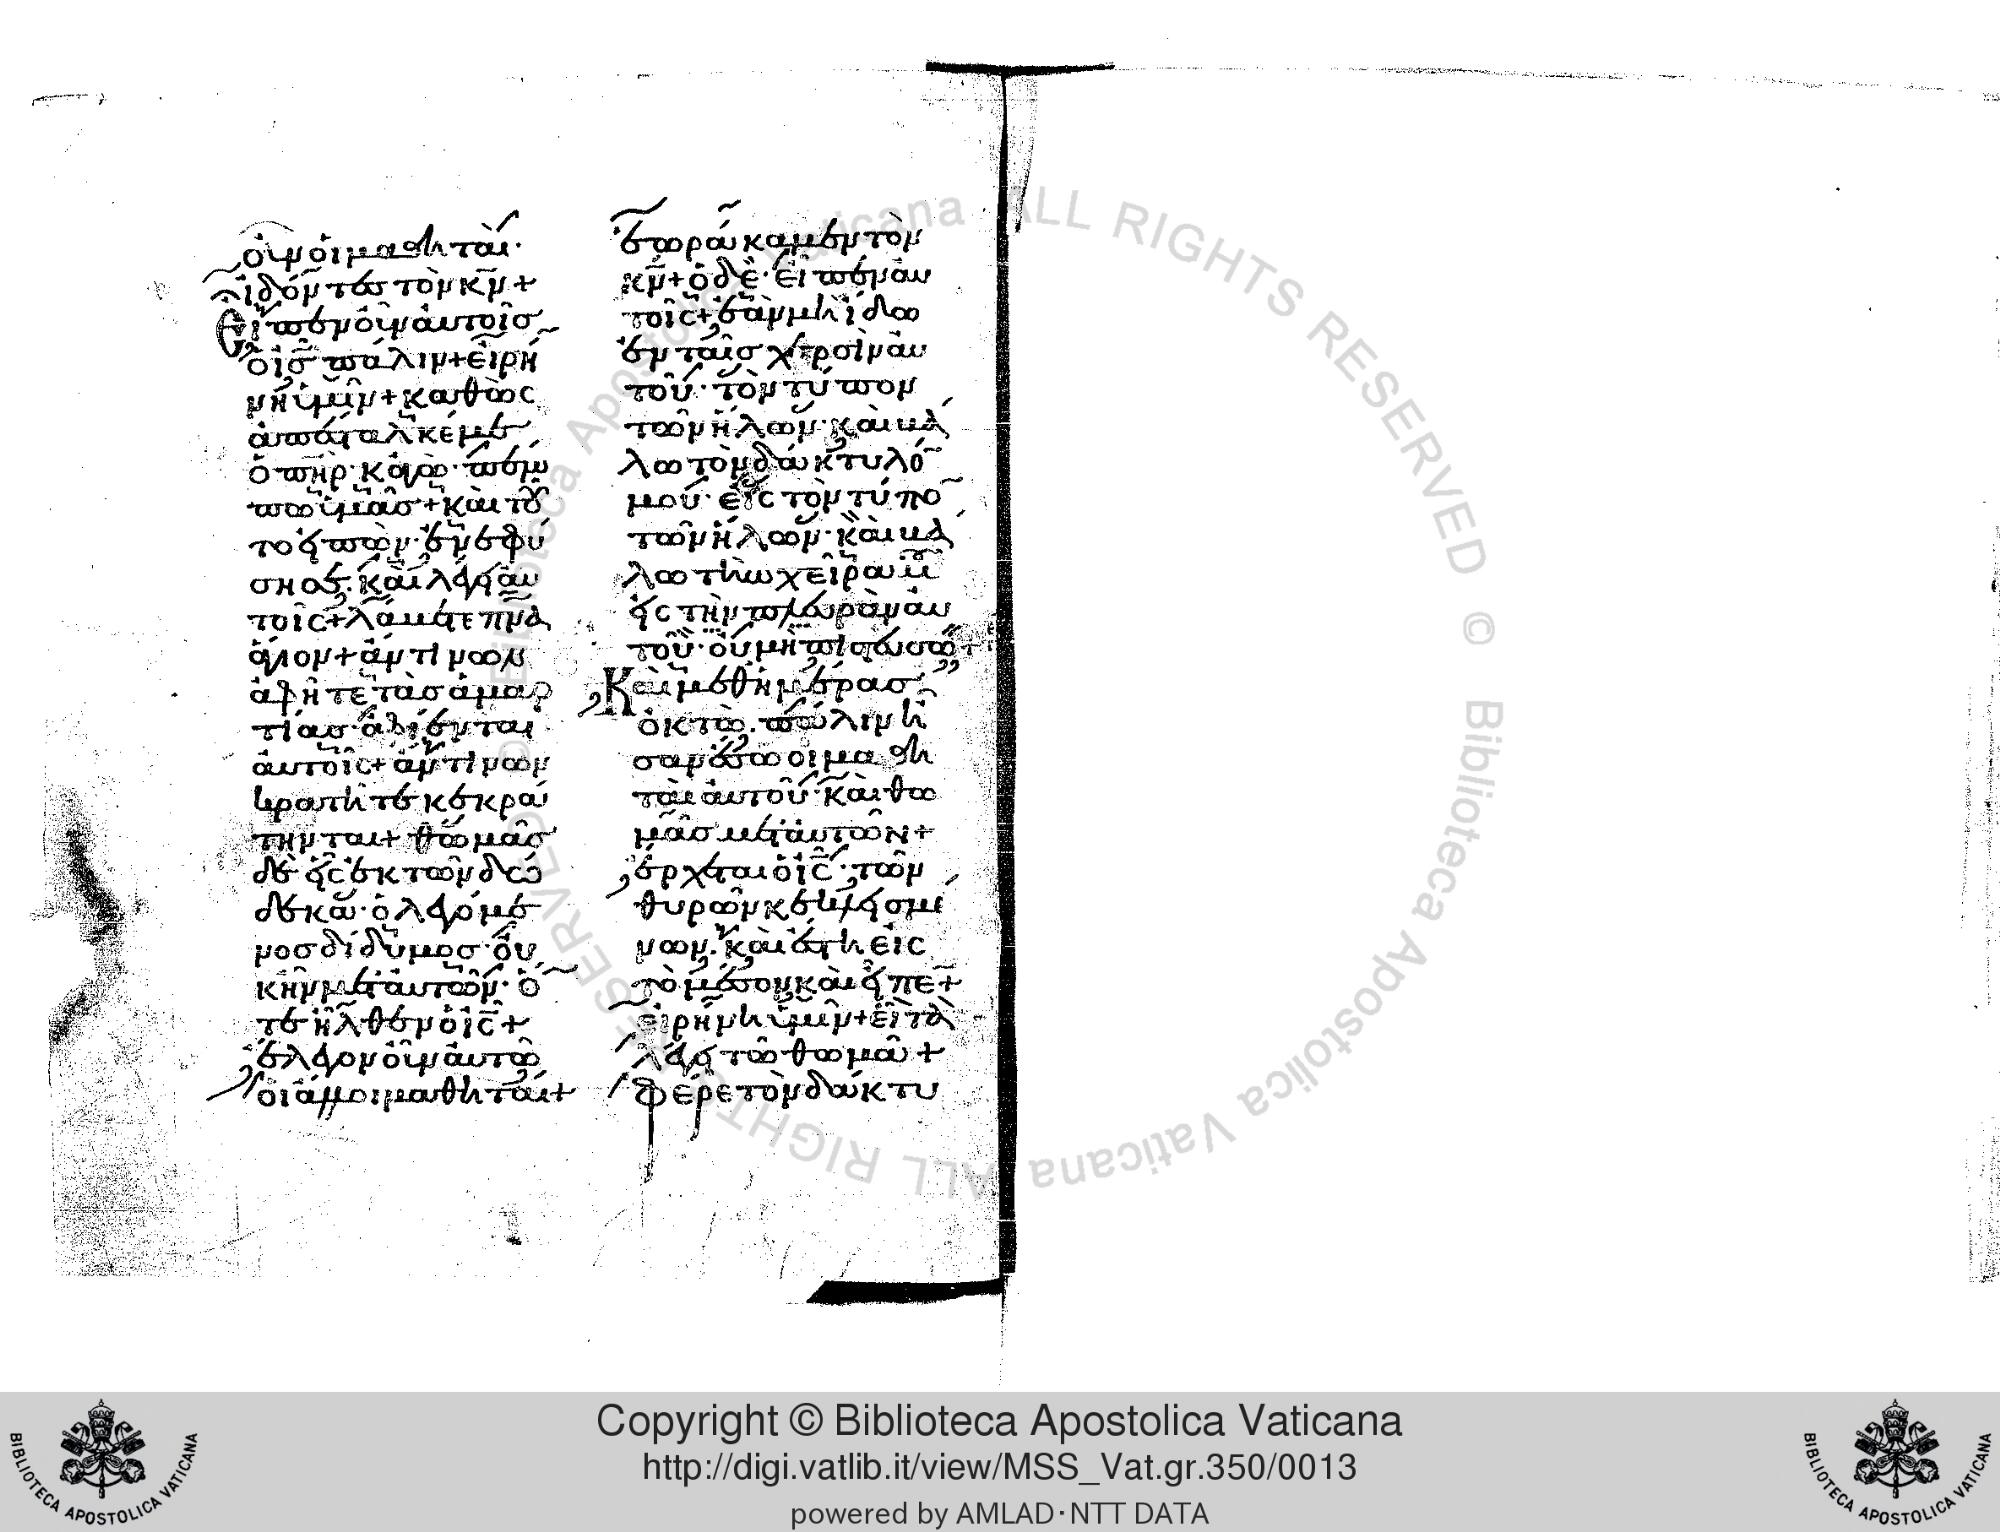 οὖν οἱ μαθηταὶ·
ἰδόντες τὸν κν̄+
Εἶπεν οὖν αὐτοῖς
ὁ ις̄ πάλιν+ εἰρή
νη ὑμῖν+ καθὼς
ἀπέσταλκέ με
ὁ πη̄ρ· κἀγὼ πέμ
πω ὑμᾶς+ καὶ τοῦ
το εἰπὼν· ἐνεφύ
σησε· καὶ λέγει αὐ
τοῖς+ λάβετε πν̄α
ἅγιον+ ἄν τινων
ἀφῆτε τὰς ἁμαρ
τίας· ἀφίενται
αὐτοῖς+ ἄν τινων
κρατῆτε κεκρά
τηνται+ θωμᾶς
δὲ εἷς ἐκ τῶν δώ
δεκα· ὁ λεγόμε
νος δίδυμος· οὐ
κ ἦν μετ' αὐτῶν· ὅ
τε ἦλθεν ὁ ις̄+
ἔλεγον οὖν αὐτῷ
οἱ ἄλλοι μαθηταί+
ἑωράκαμεν τὸν
κν̄+ ὁ δὲ· εἶπεν αὐ
τοῖς+ ἐὰν μὴ ἴδω
ἐν ταῖς χερσὶν αὐ
τοῦ· τὸν τύπον
τῶν ἥλων· καὶ βά
λω τὸν δάκτυλό
μου· εἰς τὸν τύπο
τῶν ἥλων· καὶ βά
λω τὴν χεῖρα μου
εἰς τὴν πλευρὰν αὐ
τοῦ· οὐ μὴ πιστεύσω+
Καὶ μεθ' ἡμέρας
ὀκτὼ· πάλιν ἦ
σαν ἔσω οἱ μαθη
ταὶ αὐτοῦ· καὶ θω
μᾶς μετ' αὐτῶν+
ἔρχεται ὁ ις̄· τῶν
θυρῶν κεκλεισμέ
νων· καὶ ἔστη εἰς
τὸ μέσον καὶ εἶπε+
εἰρήνη ὑμῖν+ εἶτα
λέγει τῷ θωμᾷ+
φέρε τὸν δάκτυ
Copyright © Biblioteca Apostolica Vaticana
http://digi.vatlib.it/view/MSS_Vat.gr.350/0013
powered by AMLAD·NTT DATA
BIBLIOTECA APOSTOLICA VATICANA
BIBLIOTECA APOSTOLICA VATICANA
© Biblioteca Apostolica Vaticana ALL RIGHTS RESERVED
© Biblioteca Apostolica Vaticana ALL RIGHTS RESERVED